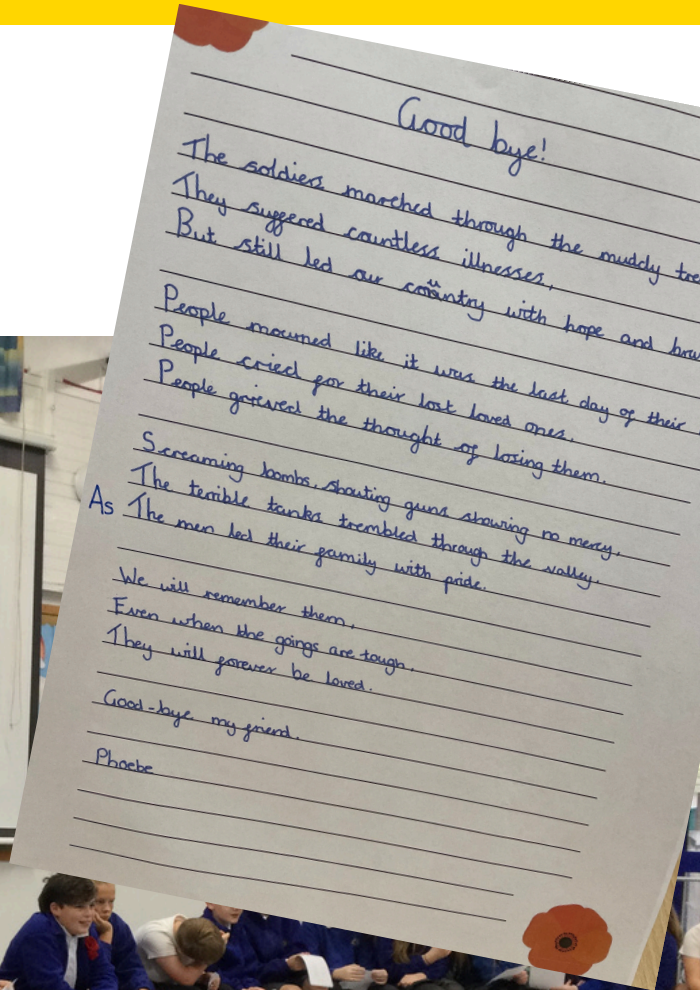 Good bye!
The soldiers marched through the muddy tre
They suffered countless illnesses,
But still led our country with hope and bra
People mourned like it was the last day of their
People cried for their lost loved ones.
People grieved the thought of losing them.
Screaming bombs, shouting guns showing no mercy,
The terrible tanks trembled through the valley.
As The men led their family with pride.
We will remember them,
Even when the goings are tough,
They will forever be loved.
Good-bye my friend.
Phoebe